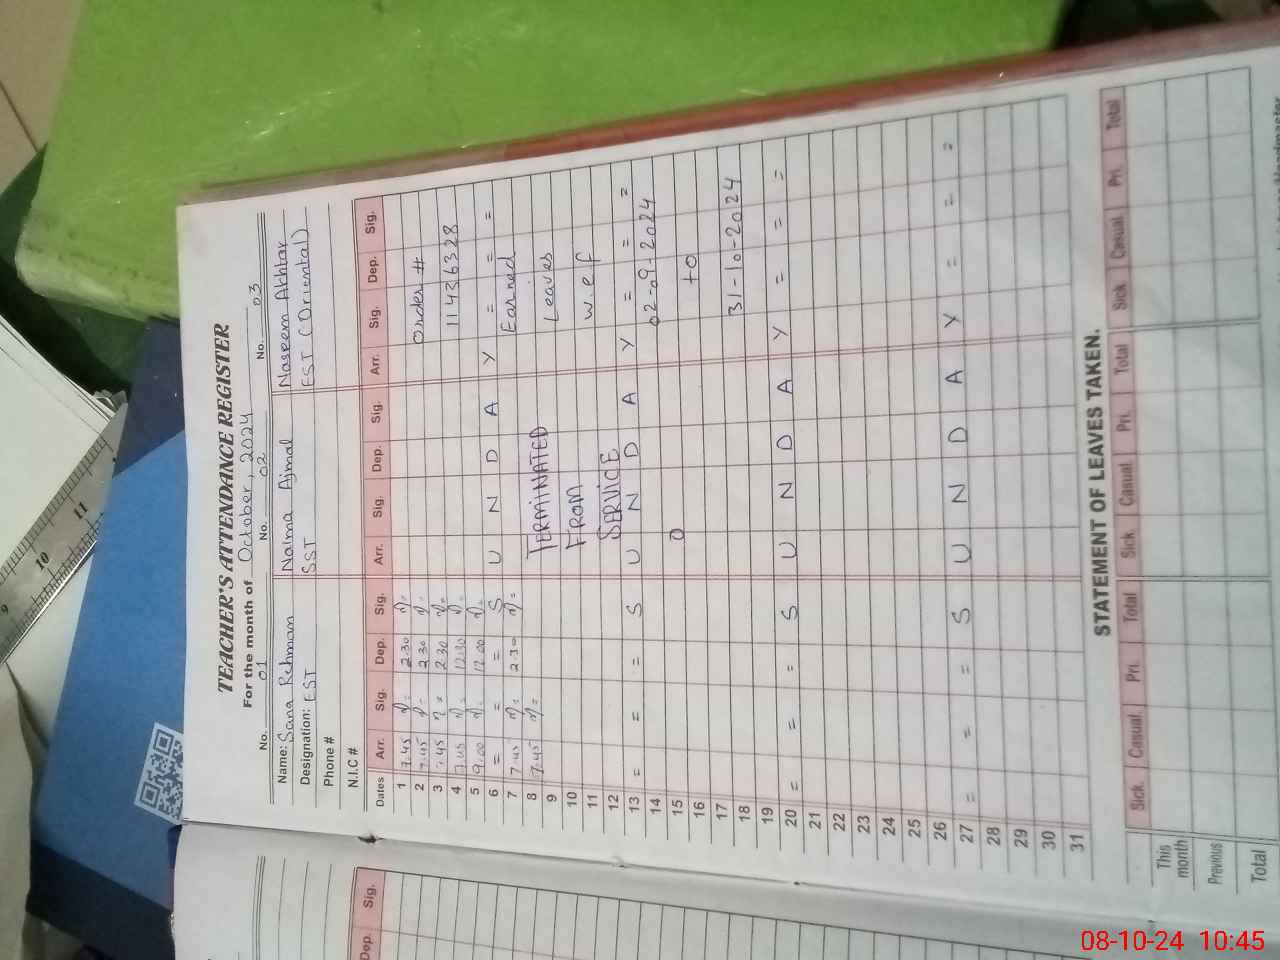 TEACHER'S ATTENDANCE REGISTER
For the month of October, 2024
No. 01 No. 02 No. 03
Name: Sana Rehman Naima Ajmal Naseem Akhtar
Designation: EST SST EST (Oriental)
Phone #
N.I.C #
Dates Arr. Sig. Dep. Sig. Arr. Sig. Dep. Sig. Arr. Sig. Dep. Sig.
1 7.45 2.30
2 7.45 2.30 Order #
3 7.45 2.30
4 7.45 12.30 11426328
5 9.00 12.00
6 = = = S U N D A Y = = =
7 7.45 2.30 Earned
8 7.45 TERMINATED
9 Leaves
10 FROM
11 w.e.f
12 SERVICE
13 = = = S U N D A Y = = =
14 02-09-2024
15 0
16 to
17
18 31-10-2024
19
20 = = = S U N D A Y = = =
21
22
23
24
25
26
27 = = = S U N D A Y = = =
28
29
30
31
STATEMENT OF LEAVES TAKEN.
Sick. Casual. Pri. Total Sick Casual. Pri. Total Sick Casual Pri. Total
This month
Previous
Total
Dep. Sig.
9 10 11
08-10-24 10:45